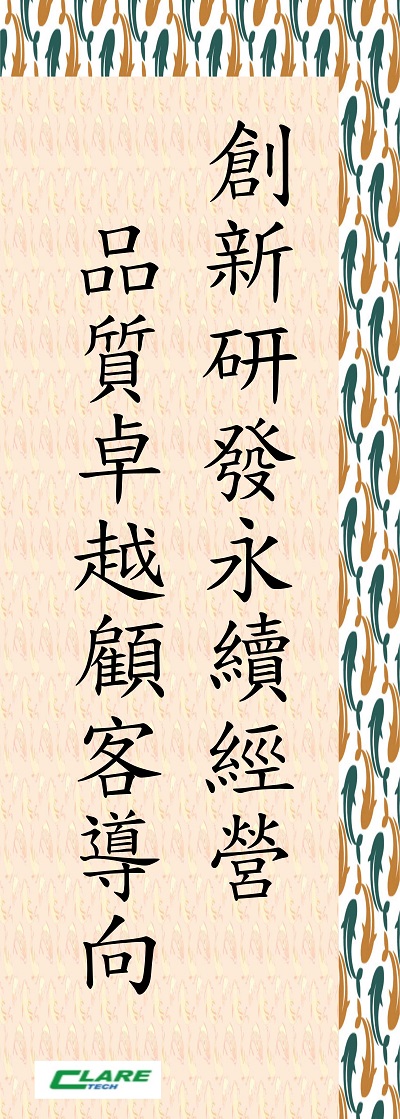 創新研發永續經營
品質卓越顧客導向
CLARE
TECH